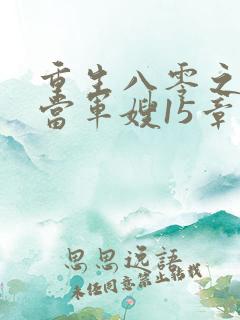 重生八零之
当军嫂15章
思思逸語
未经同意禁止转载